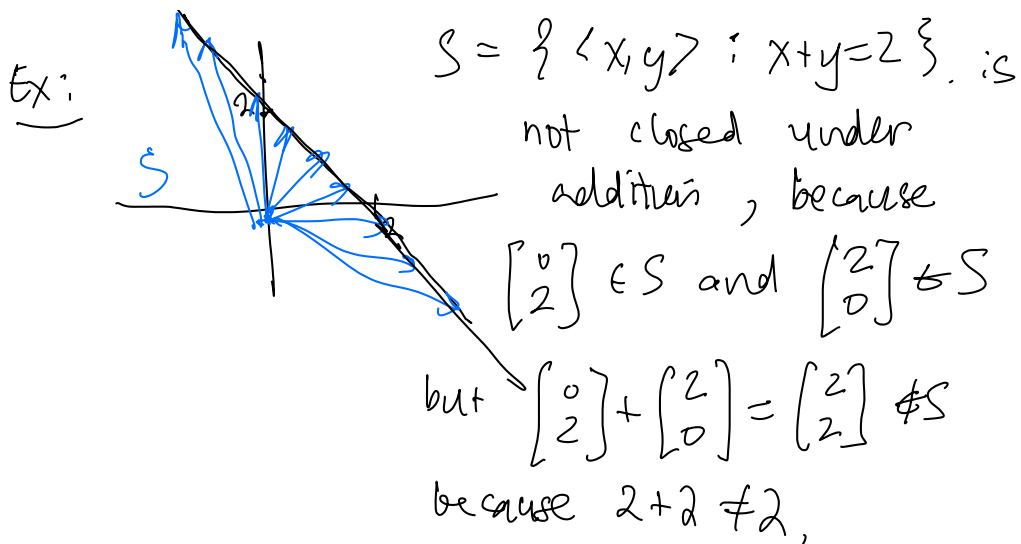 Ex:
S = { <x,y> : x+y=2 }. is
not closed under
addition, because
[0 2] ∈ S and [2 0] ∈ S
but [0 2] + [2 0] = [2 2] ∉ S
because 2+2 ≠ 2,
S
2
2